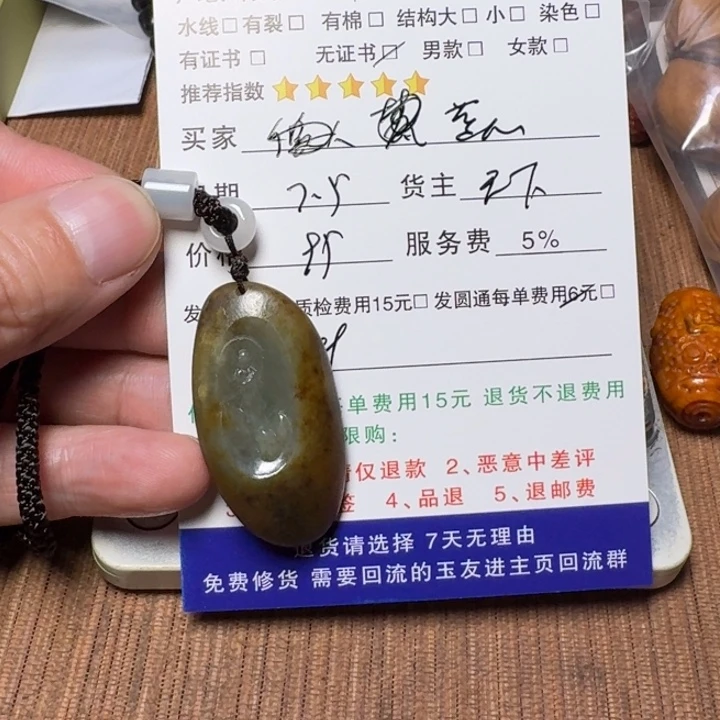 水线□ 有裂□ 有棉□ 结构大□ 小□ 染色□
有证书□ 无证书□ 男款□ 女款□
推荐指数
买家
期 7.5 货主
价格 85 服务费 5%
发 质检费用15元□ 发圆通每单费用6元□
单费用15元 退货不退费用
限购：
仅退款 2、恶意中差评
签 4、品退 5、退邮费
退货请选择 7天无理由
免费修货 需要回流的玉友进主页回流群